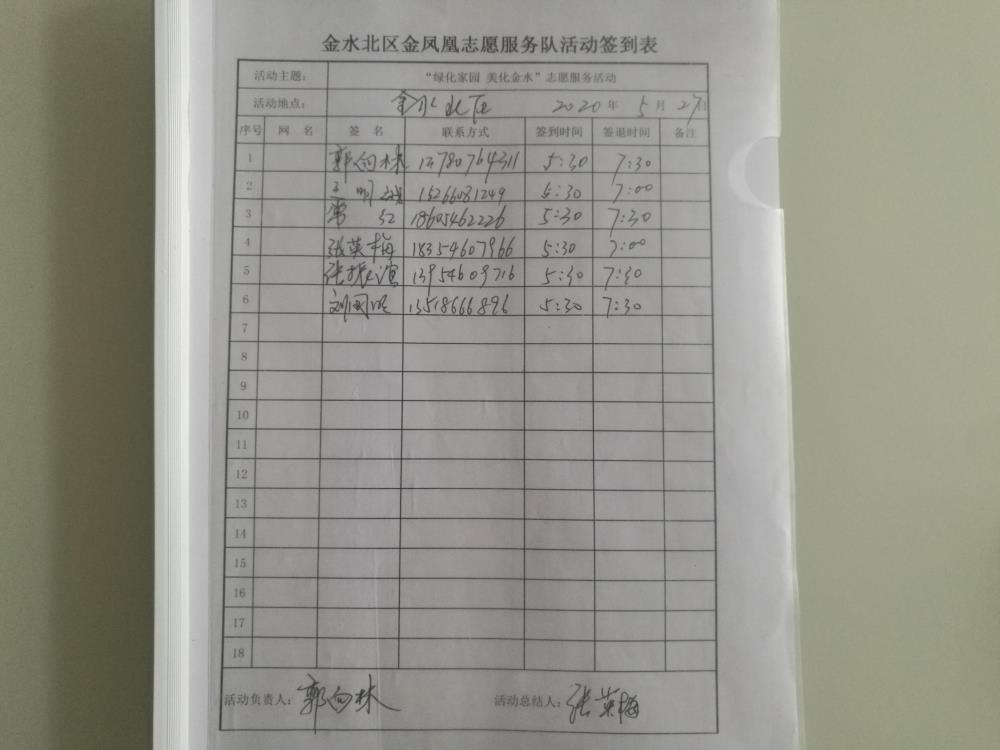 金水北区金凤凰志愿服务队活动签到表
活动主题： “绿化家园 美化金水”志愿服务活动
活动地点： 金水北区 2020 年 5 月 27日
序号 网 名 签 名 联系方式 签到时间 签退时间 备注
1 郭向林 13780764311 5:30 7:30
2 王明 15266081249 5:30 7:00
3 常红 18605462226 5:30 7:30
4 张英梅 18354607966 5:30 7:00
5 张振谊 13954609716 5:30 7:30
6 刘国明 13518666896 5:30 7:30
7
8
9
10
11
12
13
14
15
16
17
18
活动负责人： 郭向林 活动总结人： 张英梅